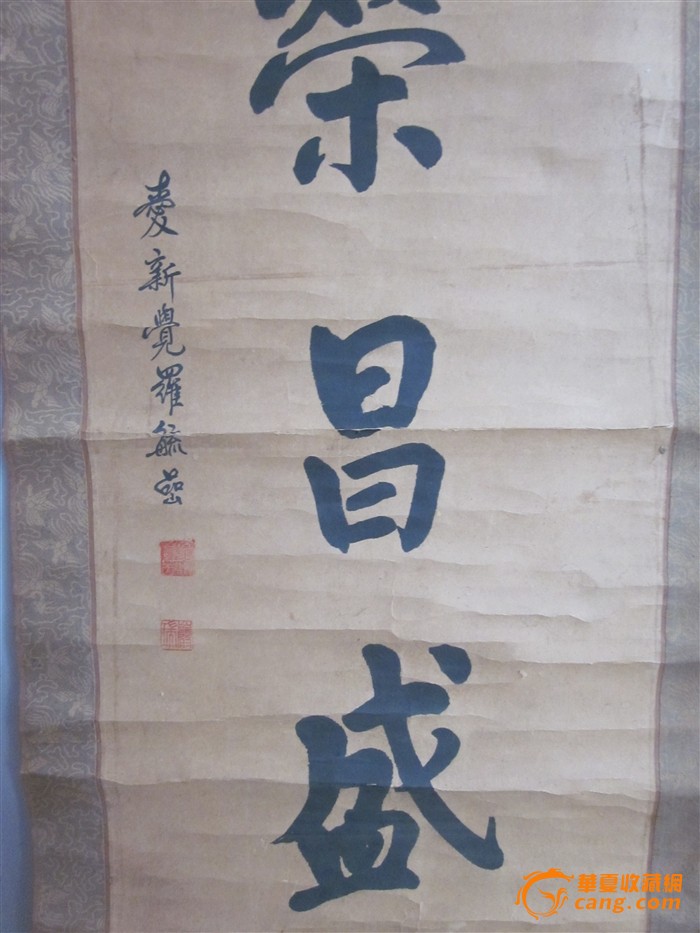 榮昌盛
愛新覺羅毓
華夏收藏網
cang.com